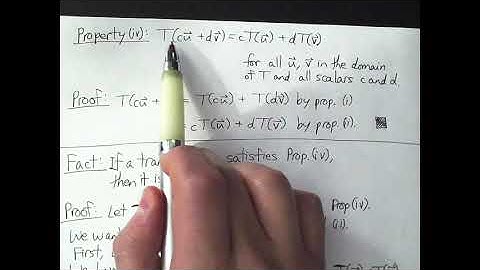 Property (iv): T(cu⃗ + dv⃗) = cT(u⃗) + dT(v⃗)
for all u⃗, v⃗ in the domain
of T and all scalars c and d.
Proof: T(cu⃗ + = T(cu⃗) + T(dv⃗) by prop. (i)
= cT(u⃗) + dT(v⃗) by prop. (i).
Fact: If a tra satisfies Prop. (iv),
then it is
Proof: Let Prop (iv).
We wan (ii).
First,